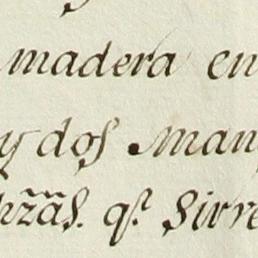 madera en
y dos man
pzãs. q.ᵉ Sirve